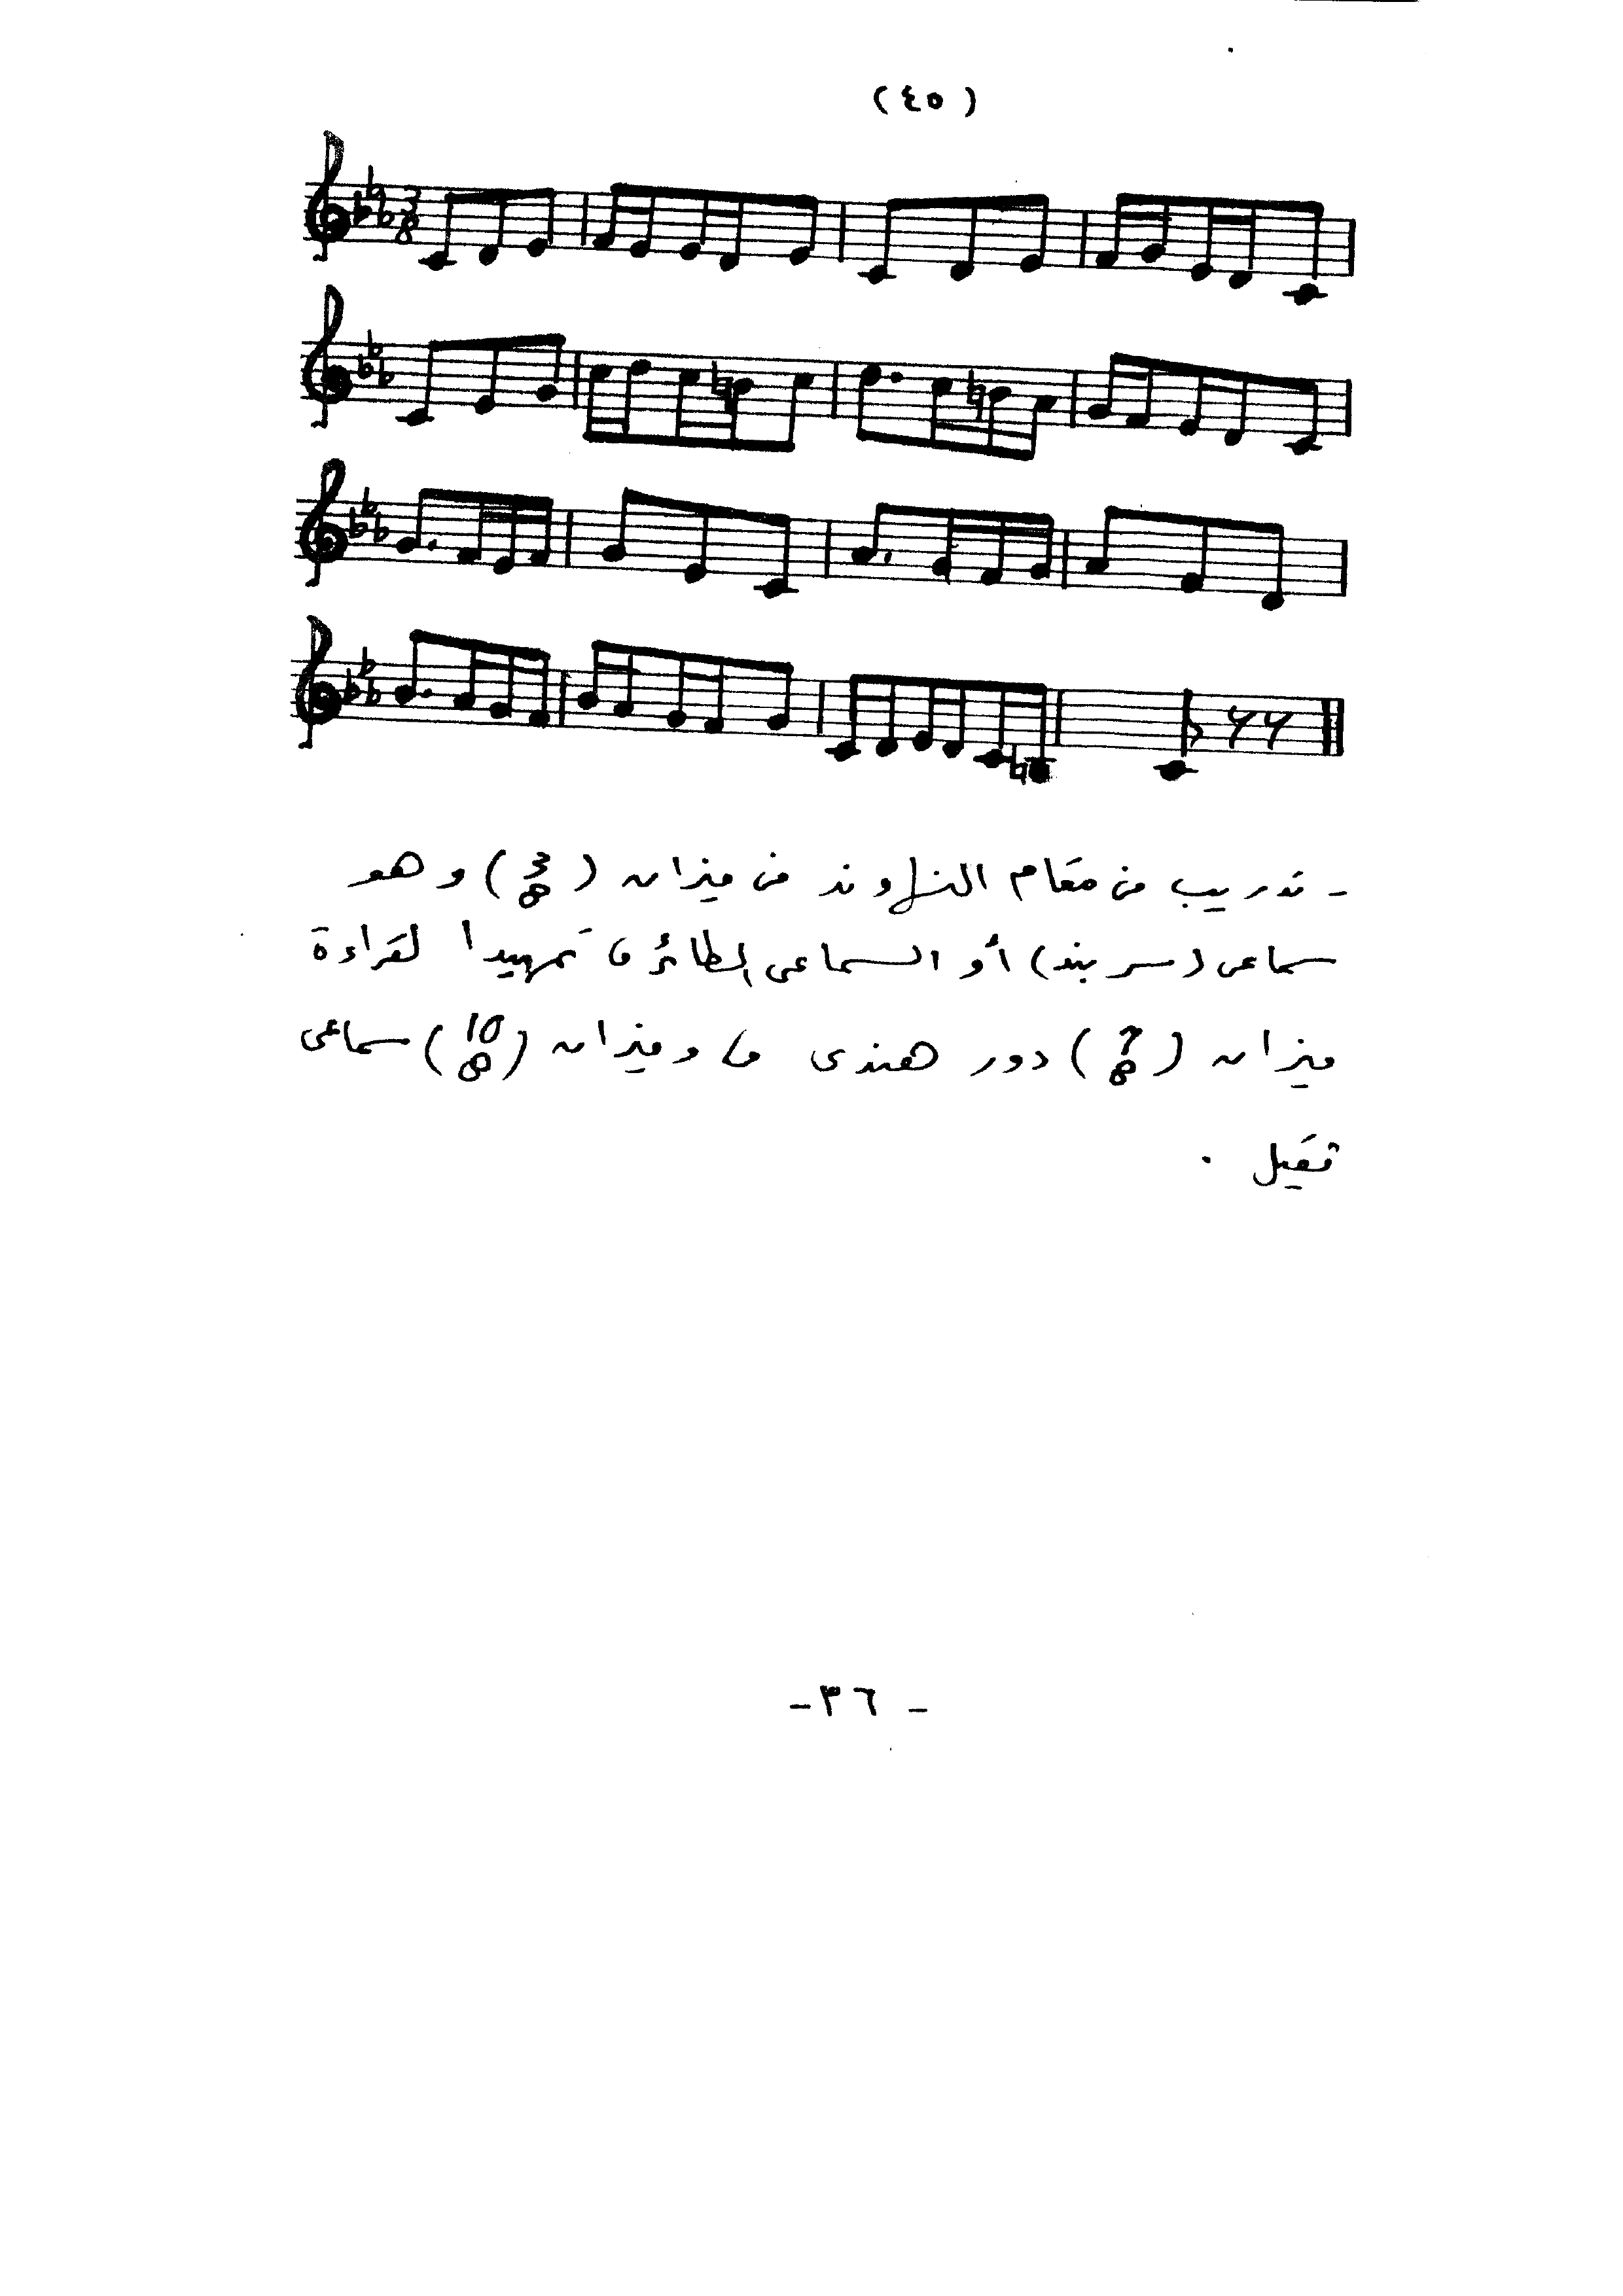 (٤٥)
3
8
- تدريب من مقام النهاوند من ميزان (3/8) وهو
سماعى (سربند) أو السماعى الطائر، تمهيدا لقراءة
ميزان (7/8) دور هندى، وميزان (10/8) سماعى
ثقيل .
- ٣٦ -